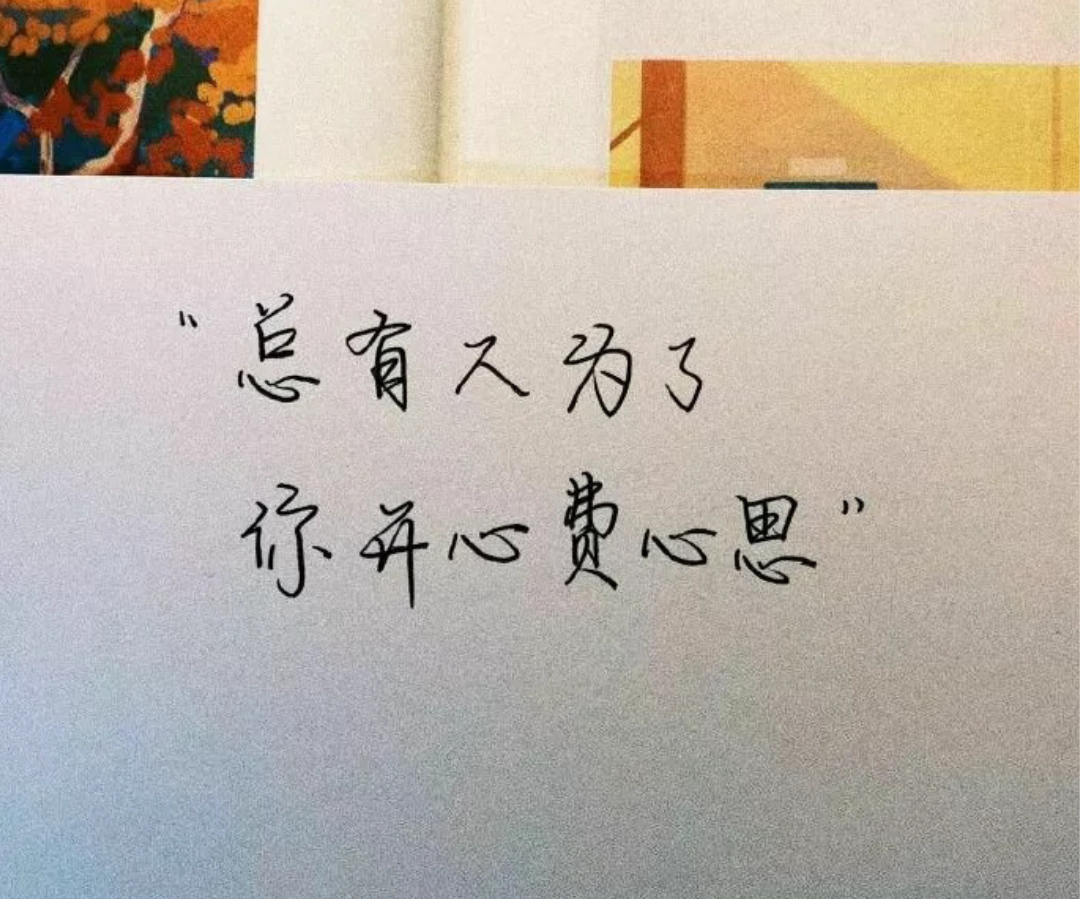 "总有人为了
你开心费心思"